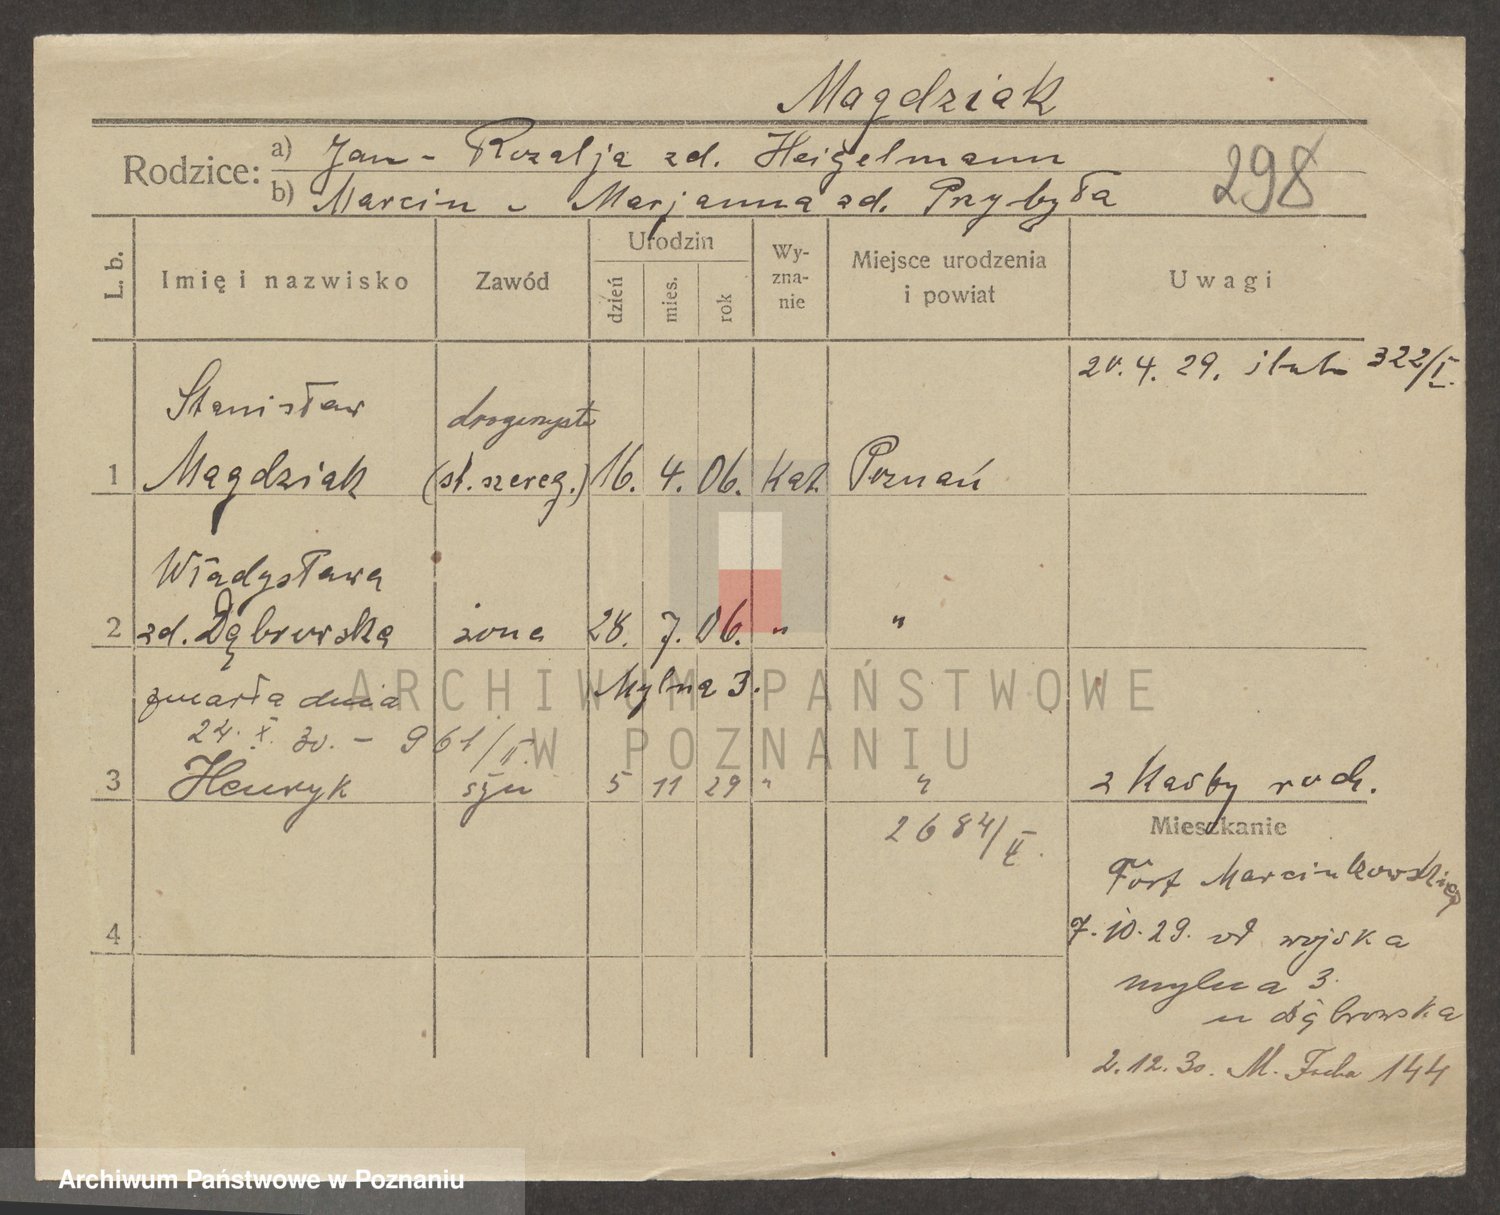 Magdziak
Rodzice: a) Jan - Rozalja zd. Heigelmann
b) Marcin - Marjanna zd. Przybyła
298
L. b.
Imię i nazwisko
Zawód
Urodzin
dzień
mies.
rok
Wy-
zna-
nie
Miejsce urodzenia
i powiat
Uwagi
20. 4. 29. ślub 322/I.
Stanisław drogerzysta
1 Magdziak (st. szereg.) 16. 4. 06. Kat. Poznań
Władysława
2 zd. Dąbrowska żona 28. 7. 06. " "
zmarła dnia Mylna 3.
24. X. 30. - 961/II.
3 Henryk syn 5 11 29 " " z Kasby rodz.
2684/II.
Mieszkanie
Fort Marcinkowskiego
4
7.10.29. od wojska
mylna 3.
u Dąbrowska
2.12.30. M. Focha 144
ARCHIWUM PAŃSTWOWE
W POZNANIU
Archiwum Państwowe w Poznaniu